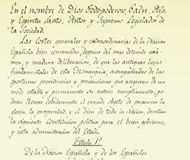 En el nombre de Dios Todopoderoso, Padre, Hijo,
y Espiritu Santo, Autor y Supremo Legislador de
la Sociedad.
Las Cortes generales y extraordinarias de la Nacion
Española, bien convencidas, despues del mas detenido exá-
men, y madura deliberacion, de que las antiguas leyes
fundamentales de esta Monarquia, acompañadas de las
oportunas providencias y precauciones, que aseguren de un
modo estable y permanente su entero cumplimiento, po-
drán llenar debidamente el grande objeto de promover la
gloria, la prosperidad, y el bien de toda la nacion, decretan
la siguiente Constitucion politica para el buen gobierno, y
recta administracion del Estado.
Titulo 1.º
De la Nacion Española y de los Españoles